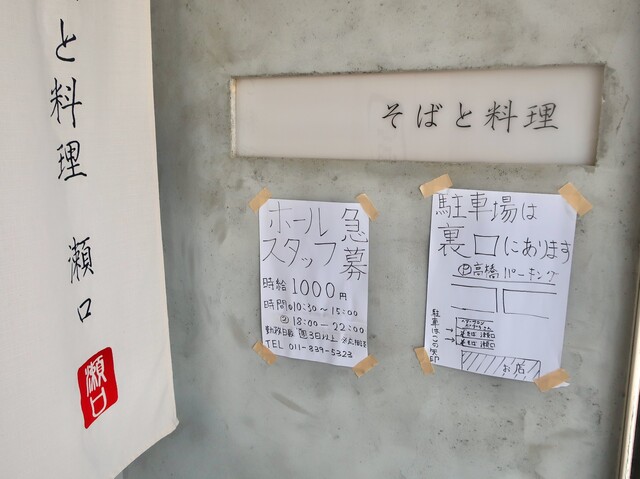 と料理 瀬口
瀬口
そばと料理
ホール
スタッフ
急募
時給 1000円
時間 ①10:30～15:00
②18:00―22:00
勤務日数 週3日以上
TEL 011-839-5323
駐車場は
裏口にあります
Ⓟ高橋パーキング
そば 瀬口
そば 瀬口
お店